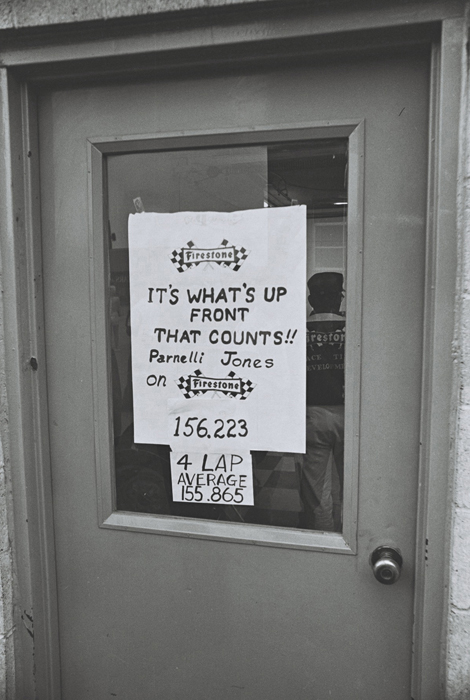 Firestone
IT'S WHAT'S UP
FRONT
THAT COUNTS!!
Parnelli Jones
on Firestone
156.223
4 LAP
AVERAGE
155.865